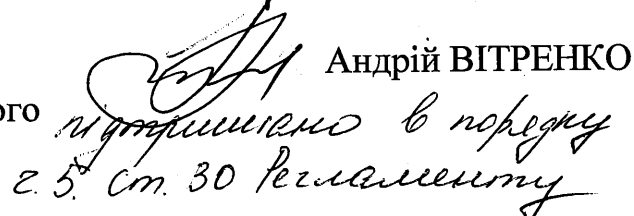 Андрій ВІТРЕНКО
ого підтримано в порядку
ч. 5. ст. 30 Регламенту